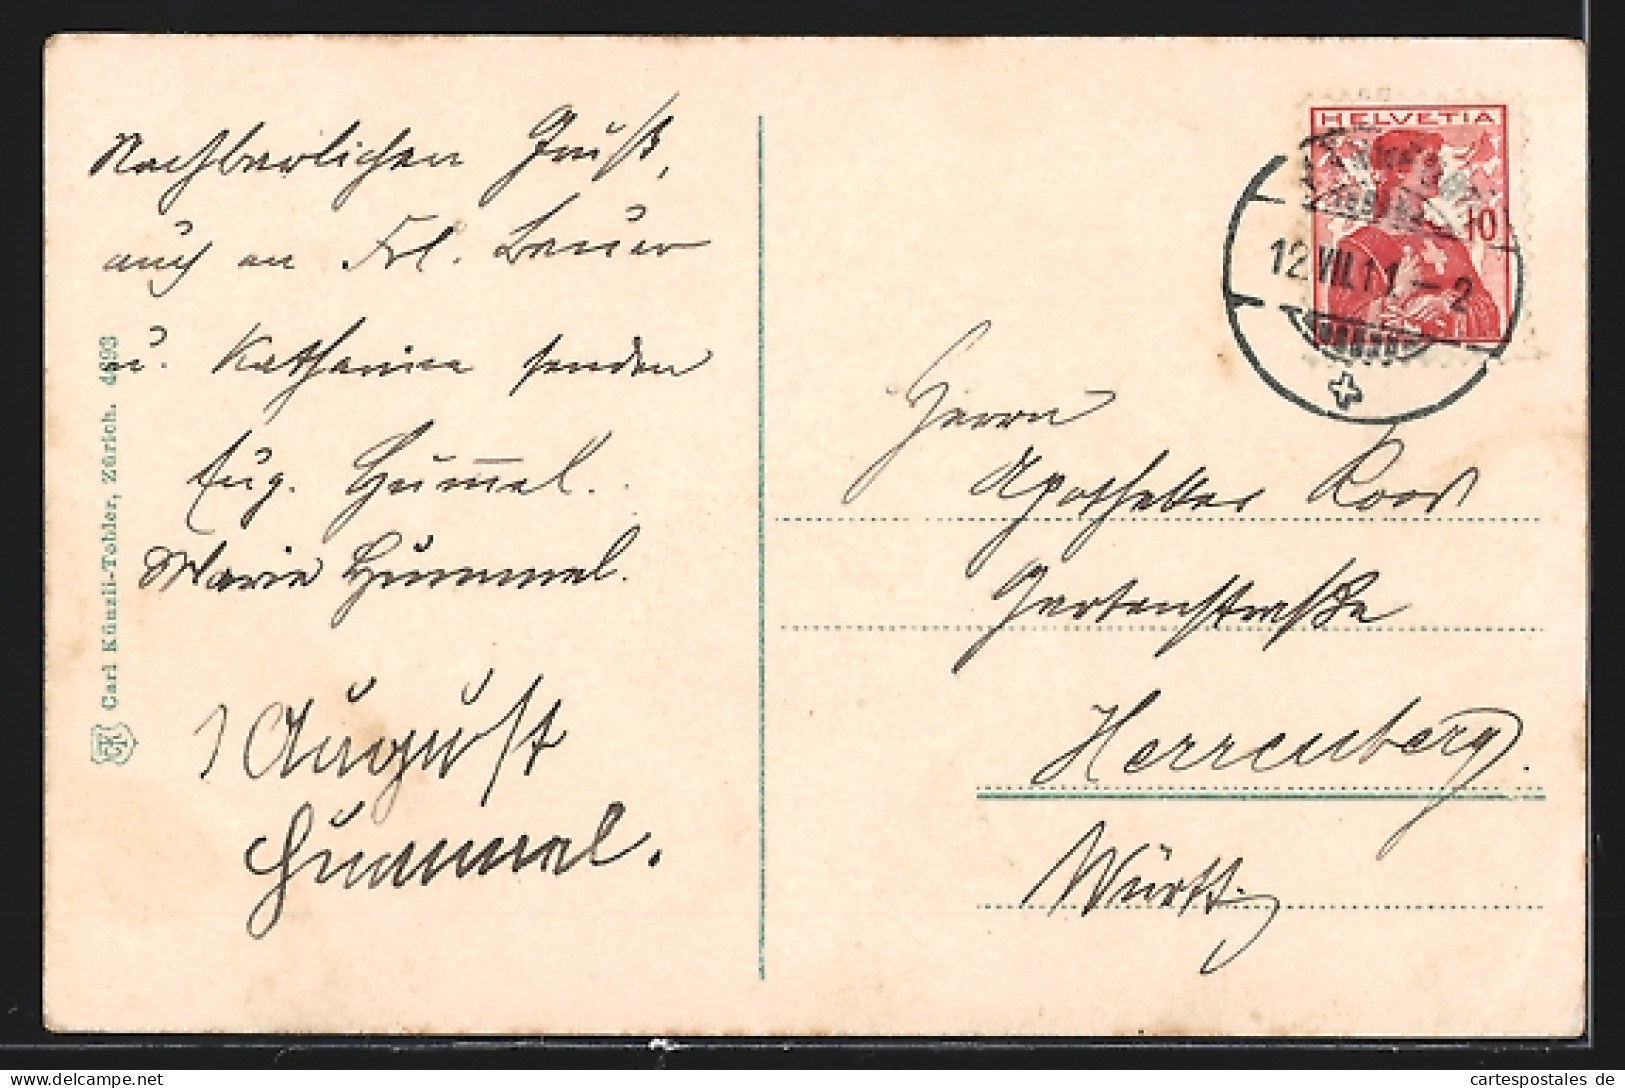 Nachbarlichen Gruß,
auch an Frl. Bauer
u. Katharina senden
Eug. Hummel.
Marie Hummel.
August
Hummel.
Carl Künzli-Tobler, Zürich. 4693
HELVETIA
10
12.VII.11.-2
Herrn
Apotheker
Gartenstraße
Herrenberg.
Württ.
cartespostales de